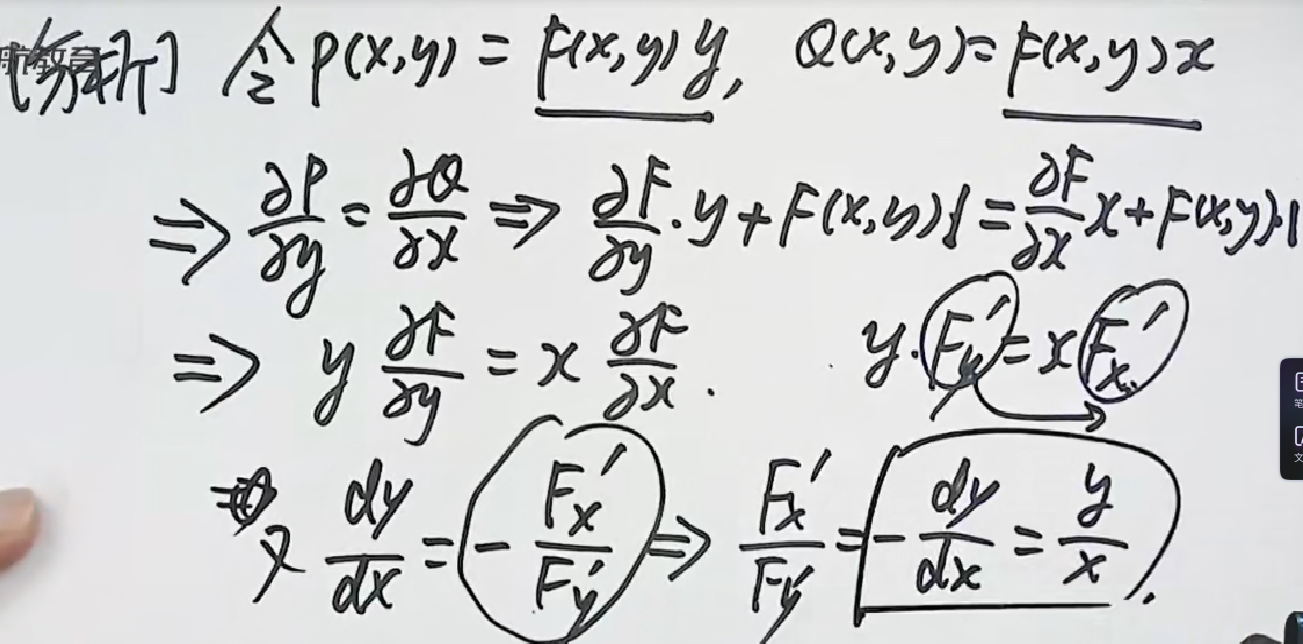 [分析] 令 P(x,y) = F(x,y) y, Q(x,y) = F(x,y) x
⇒ ∂P/∂y = ∂Q/∂x ⇒ ∂F/∂y · y + F(x,y)·1 = ∂F/∂x x + F(x,y)·1
⇒ y ∂F/∂y = x ∂F/∂x . y·F'y = x F'x
又 dy/dx = - F'x/F'y ⇒ F'x/F'y = - dy/dx = y/x .